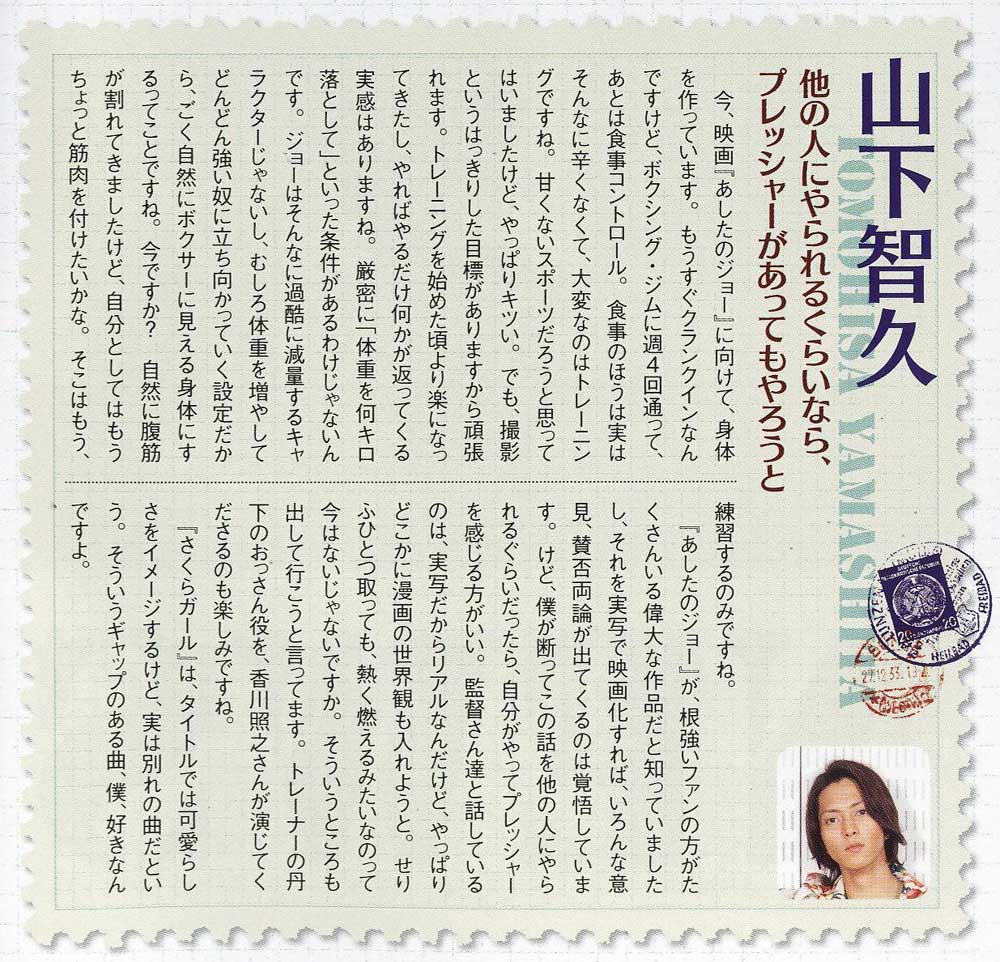 山下智久
TOMOHISA YAMASHITA
他の人にやられるくらいなら、
プレッシャーがあってもやろうと
今、映画『あしたのジョー』に向けて、身体
を作っています。もうすぐクランクインなん
ですけど、ボクシング・ジムに週4回通って、
あとは食事コントロール。食事のほうは実は
そんなに辛くなくて、大変なのはトレーニン
グですね。甘くないスポーツだろうと思って
はいましたけど、やっぱりキツい。でも、撮影
というはっきりした目標がありますから頑張
れます。トレーニングを始めた頃より楽になっ
てきたし、やればやるだけ何かが返ってくる
実感はありますね。厳密に「体重を何キロ
落として」といった条件があるわけじゃないん
です。ジョーはそんなに過酷に減量するキャ
ラクターじゃないし、むしろ体重を増やして
どんどん強い奴に立ち向かっていく設定だか
ら、ごく自然にボクサーに見える身体にす
るってことですね。今ですか？ 自然に腹筋
が割れてきましたけど、自分としてはもう
ちょっと筋肉を付けたいかな。そこはもう、
練習するのみですね。
『あしたのジョー』が、根強いファンの方がた
くさんいる偉大な作品だと知っていました
し、それを実写で映画化すれば、いろんな意
見、賛否両論が出てくるのは覚悟していま
す。けど、僕が断ってこの話を他の人にやら
れるぐらいだったら、自分がやってプレッシャー
を感じる方がいい。監督さん達と話している
のは、実写だからリアルなんだけど、やっぱり
どこかに漫画の世界観も入れようと。せり
ふひとつ取っても、熱く燃えるみたいなのって
今はないじゃないですか。そういうところも
出して行こうと言ってます。トレーナーの丹
下のおっさん役を、香川照之さんが演じてく
ださるのも楽しみですね。
『さくらガール』は、タイトルでは可愛らし
さをイメージするけど、実は別れの曲だとい
う。そういうギャップのある曲、僕、好きなん
ですよ。
HEINBAD